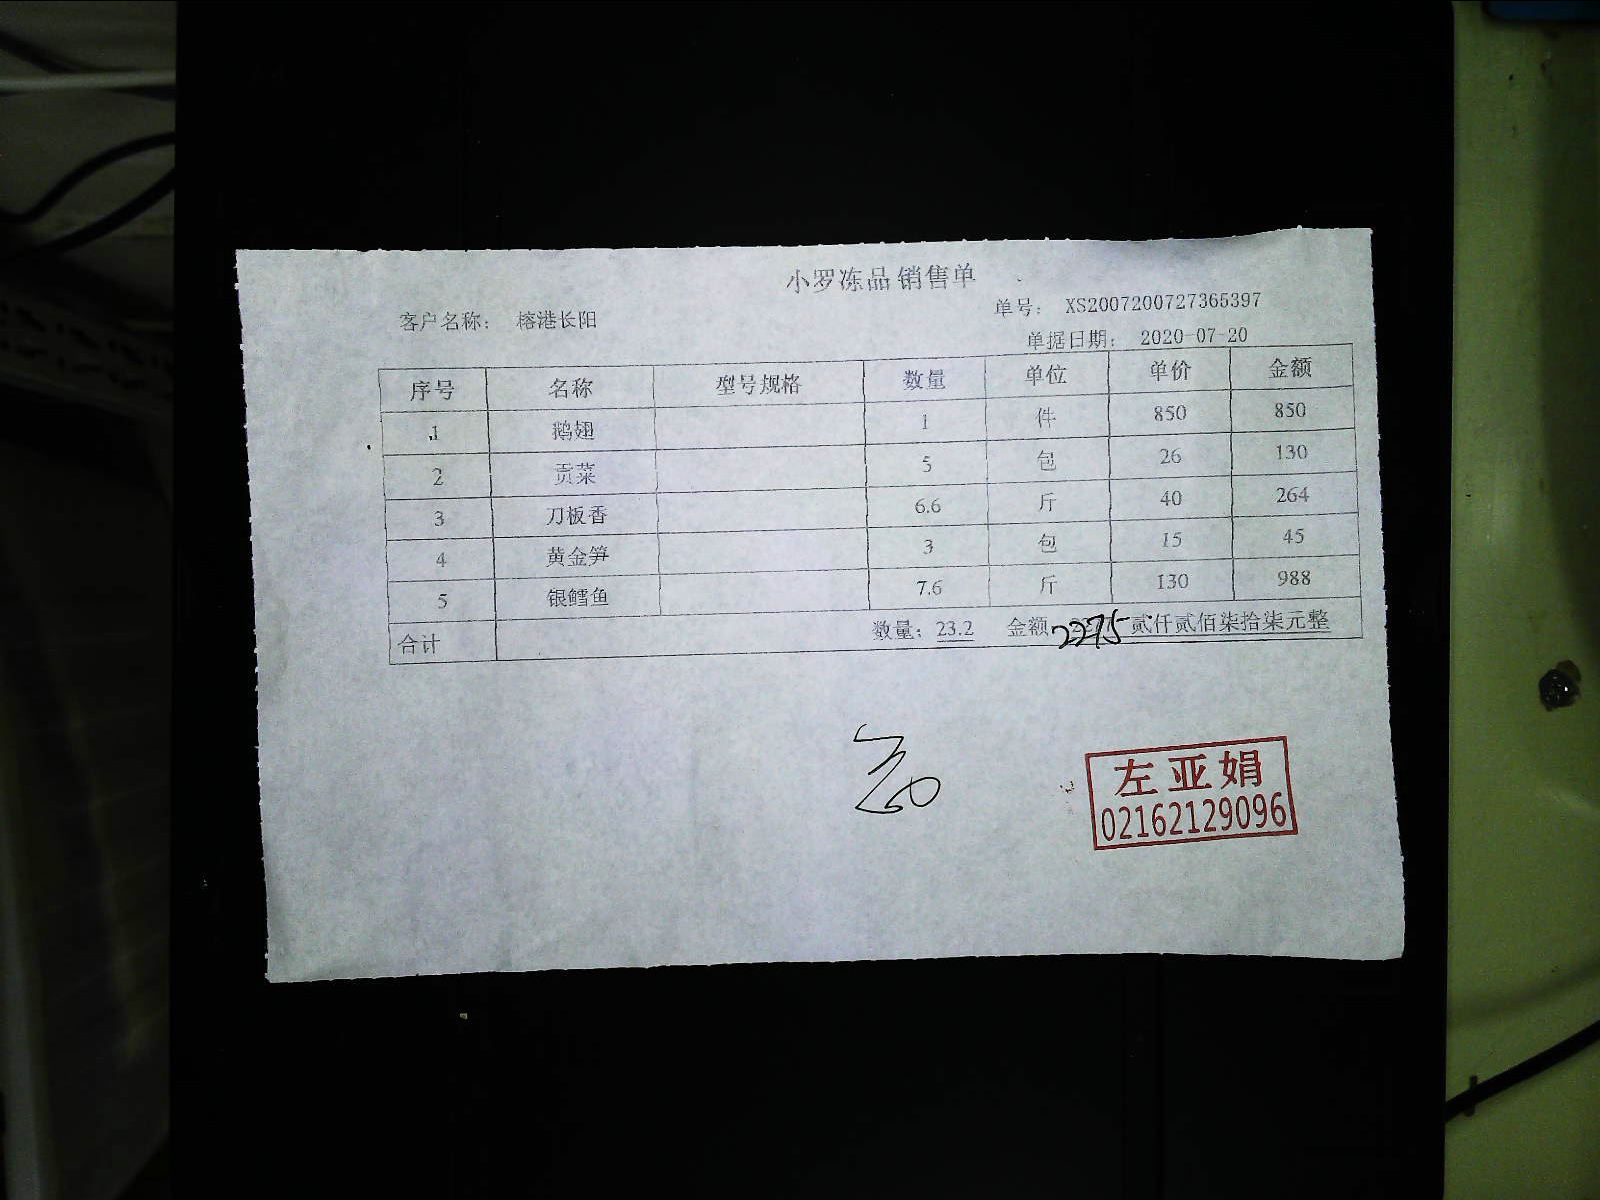 小罗冻品 销售单
单号： XS2007200727365397
客户名称： 榕港长阳
单据日期： 2020-07-20
序号 名称 型号规格 数量 单位 单价 金额
1 鹅翅 1 件 850 850
2 贡菜 5 包 26 130
3 刀板香 6.6 斤 40 264
4 黄金笋 3 包 15 45
5 银鳕鱼 7.6 斤 130 988
合计 数量：23.2 金额 2275 贰仟贰佰柒拾柒元整
左亚娟
02162129096